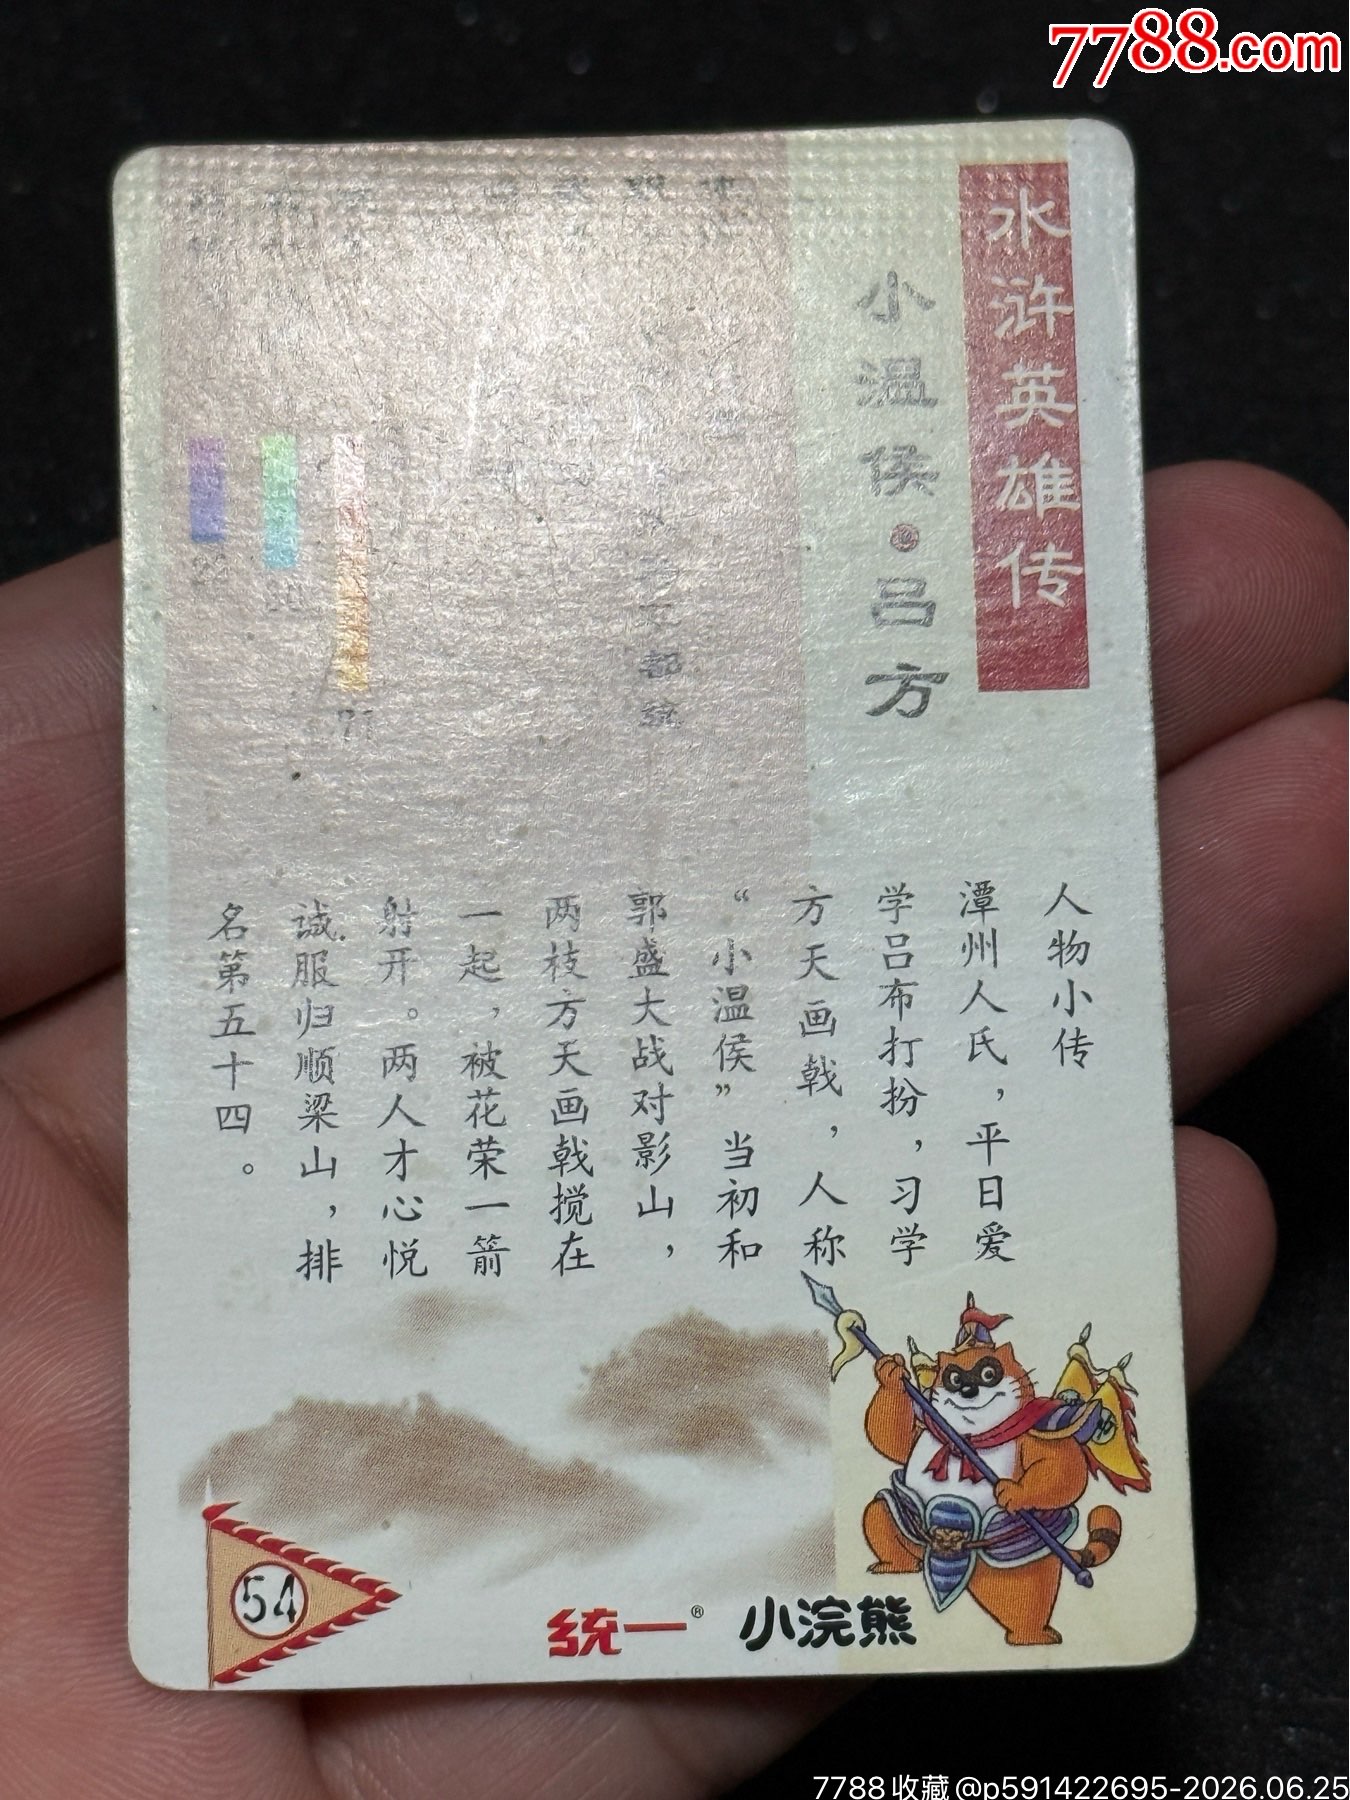 7788.com
水浒英雄传
小温侯·吕方
都统
71
人物小传
潭州人氏，平日爱
学吕布打扮，习学
方天画戟，人称
“小温侯”当初和
郭盛大战对影山，
两枝方天画戟搅在
一起，被花荣一箭
射开。两人才心悦
诚服归顺梁山，排
名第五十四。
54
统一® 小浣熊
7788收藏@p591422695-2026.06.25